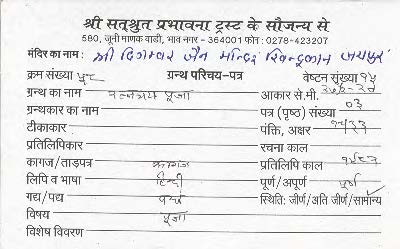 श्री सत्श्रुत प्रभावना ट्रस्ट के सौजन्य से
580, जुनी माणक वाडी, भाव नगर - 364001 फोन : 0278-423207
मंदिर का नाम : श्री दिगम्बर जैन मन्दिर जयपुर
क्रम संख्या ग्रन्थ परिचय-पत्र वेष्टन संख्या १५
ग्रन्थ का नाम रत्नत्रय पूजा आकार से.मी.
ग्रन्थकार का नाम पत्र (पृष्ठ) संख्या ०३
टीकाकार पंक्ति, अक्षर
प्रतिलिपिकार रचना काल
कागज/ताड़पत्र कागज प्रतिलिपि काल
लिपि व भाषा हिन्दी पूर्ण/अपूर्ण पूर्ण
गद्य/पद्य पद्य स्थिति: जीर्ण/अति जीर्ण/सामान्य
विषय पूजा
विशेष विवरण